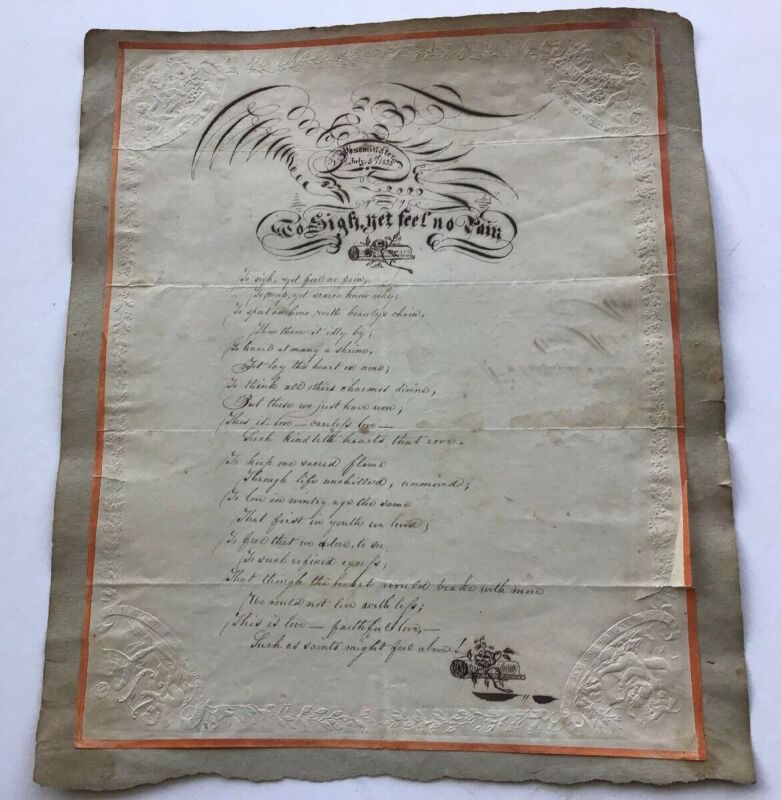 Westminster
July 5th 1838
To Sigh, yet feel no Pain
To sigh, yet feel no pain,
To weep, yet scarce know why;
To sport an hour with beauty's chain,
Then throw it idly by;
To kneel at many a shrine,
Yet lay the heart on none;
To think all others charmes divine,
But these we just have won;
This is love — careless love —
Such kindleth hearts that rove.
To keep one sacred flame
Through life unchilled, unmoved;
To love in wintry age the same
That first in youth we loved;
To feel that we adore, to
To such refined excess,
That though the heart would brake with more
We could not live with less;
This is love — faithful love, —
Such as saints might feel above!